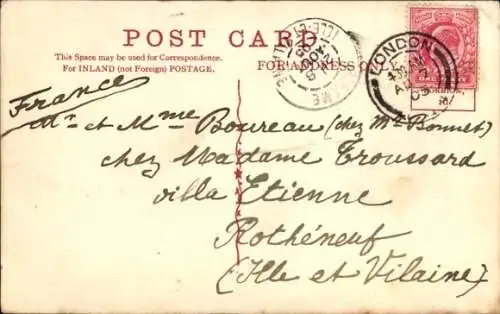 POST CARD.
This Space may be used for Correspondence.
For INLAND (not Foreign) POSTAGE.
FOR ADDRESS O
LONDON
France
Mr et Mme Boureau (chez Mr Bonnet)
chez Madame Troussard
villa Etienne
Rothéneuf
(Ille et Vilaine)